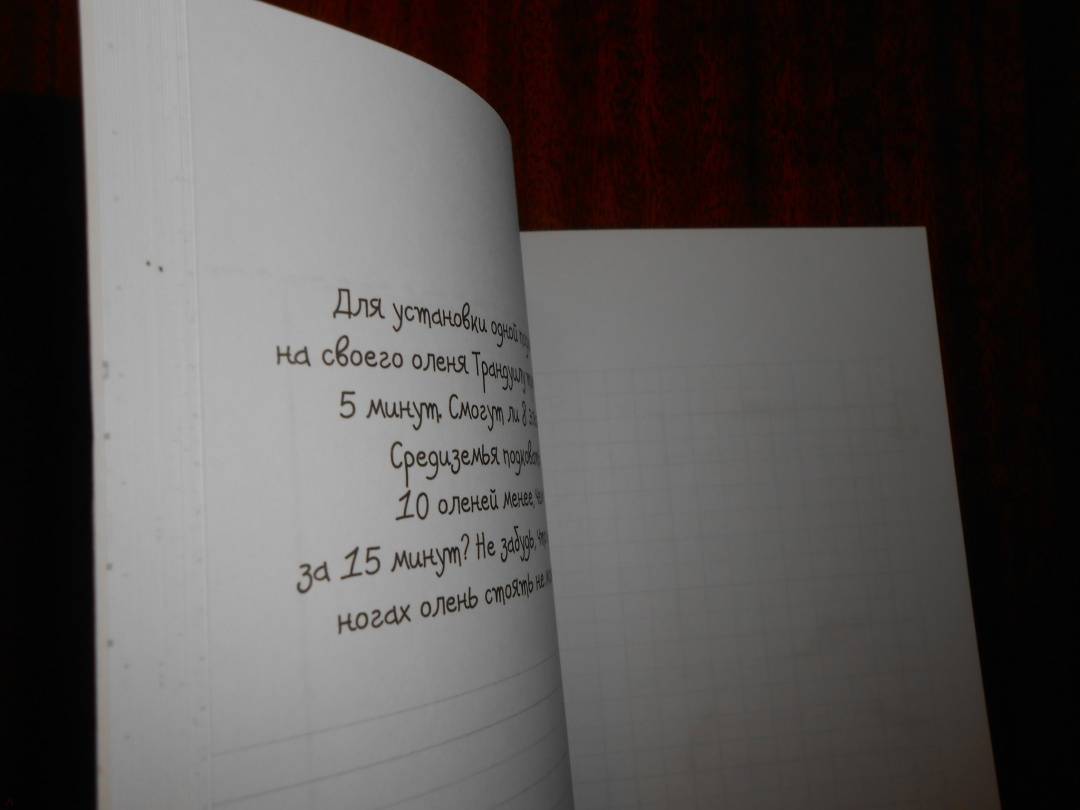 Для установки одной
на своего оленя Трандуилу
5 минут. Смогут ли 8
Средиземья
10 оленей менее,
за 15 минут? Не забудь,
ногах олень стоять не